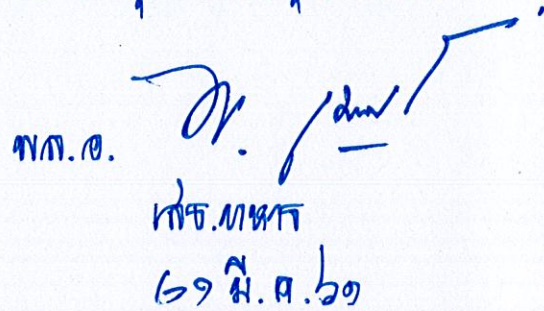 พล.อ.
เสธ.ทหาร
๒๑ มี.ค.๖๑